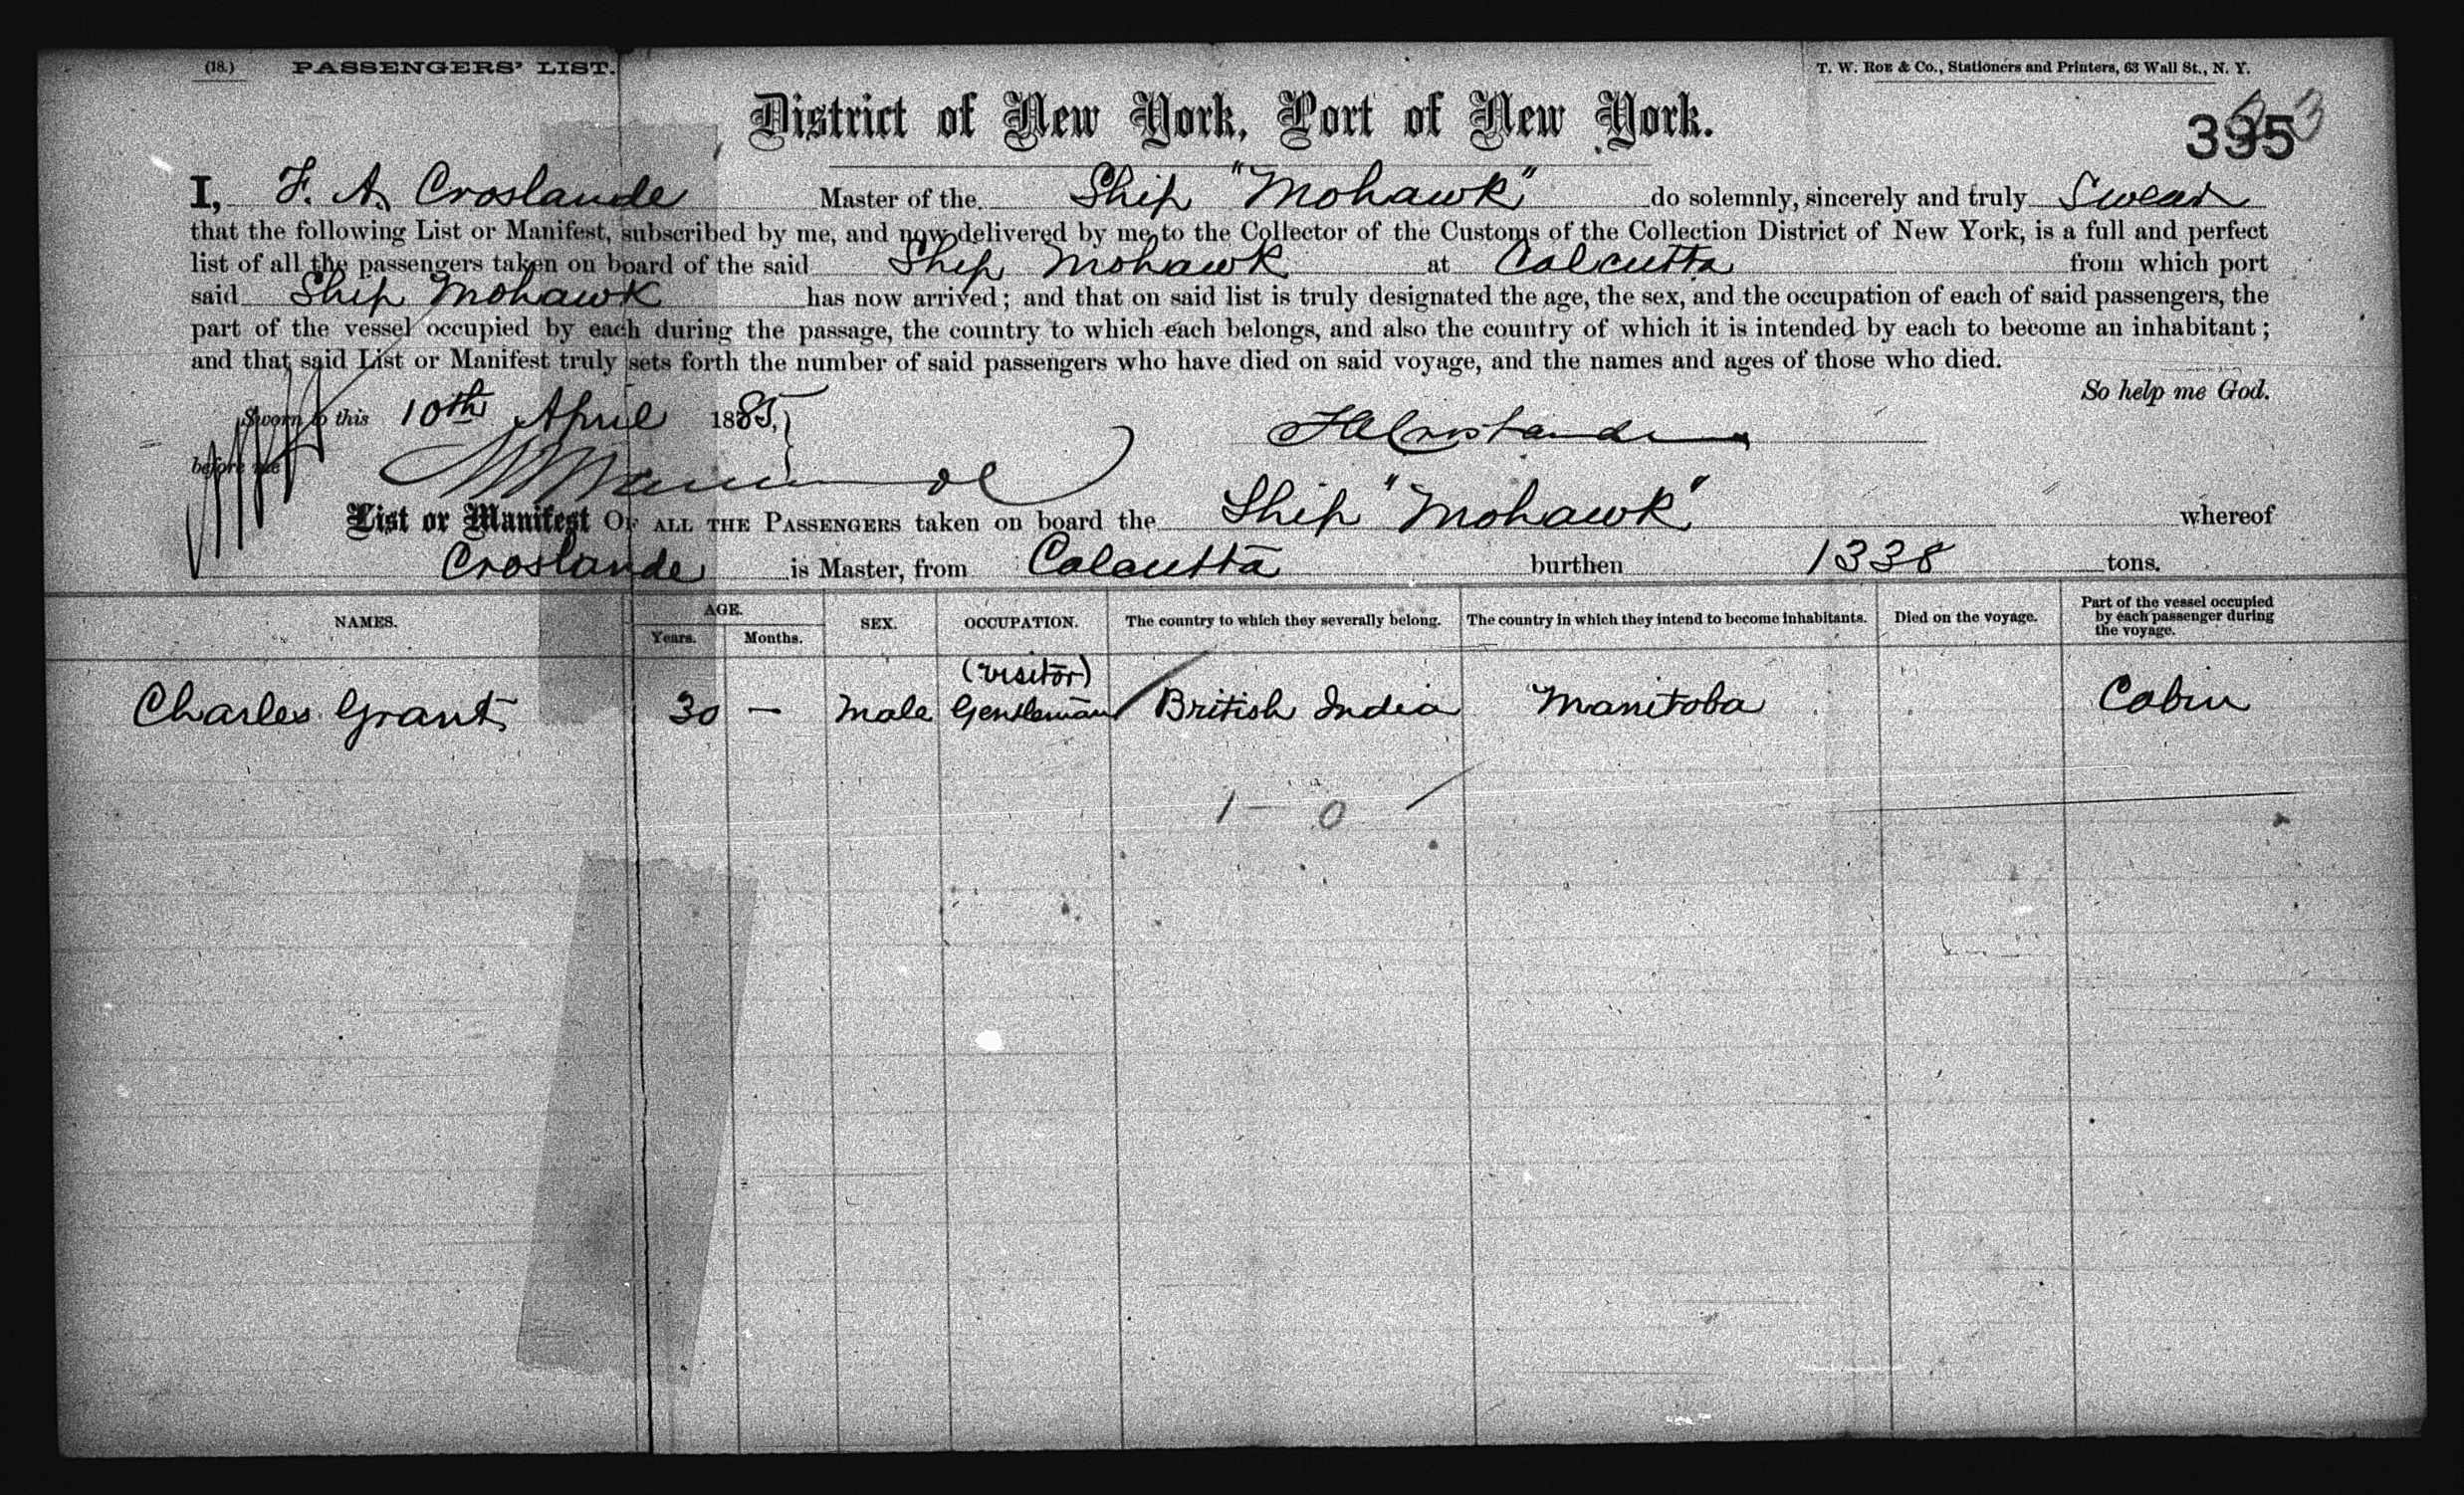 (18.) PASSENGERS' LIST.
T. W. Roe & Co., Stationers and Printers, 63 Wall St., N. Y.
District of New York, Port of New York.
395
I, F. A. Croslande Master of the Ship "Mohawk" do solemnly, sincerely and truly Swear
that the following List or Manifest, subscribed by me, and now delivered by me to the Collector of the Customs of the Collection District of New York, is a full and perfect
list of all the passengers taken on board of the said Ship Mohawk at Calcutta from which port
said Ship Mohawk has now arrived; and that on said list is truly designated the age, the sex, and the occupation of each of said passengers, the
part of the vessel occupied by each during the passage, the country to which each belongs, and also the country of which it is intended by each to become an inhabitant;
and that said List or Manifest truly sets forth the number of said passengers who have died on said voyage, and the names and ages of those who died.
So help me God.
Sworn to this 10th April 1885,
before me
List or Manifest Of all the Passengers taken on board the Ship "Mohawk" whereof
Croslande is Master, from Calcutta burthen 1338 tons.
NAMES. AGE. Years. Months. SEX. OCCUPATION. The country to which they severally belong. The country in which they intend to become inhabitants. Died on the voyage. Part of the vessel occupied by each passenger during the voyage.
(visitor)
Charles Grant 30 — Male Gentleman British India Manitoba Cabin
1 — 0